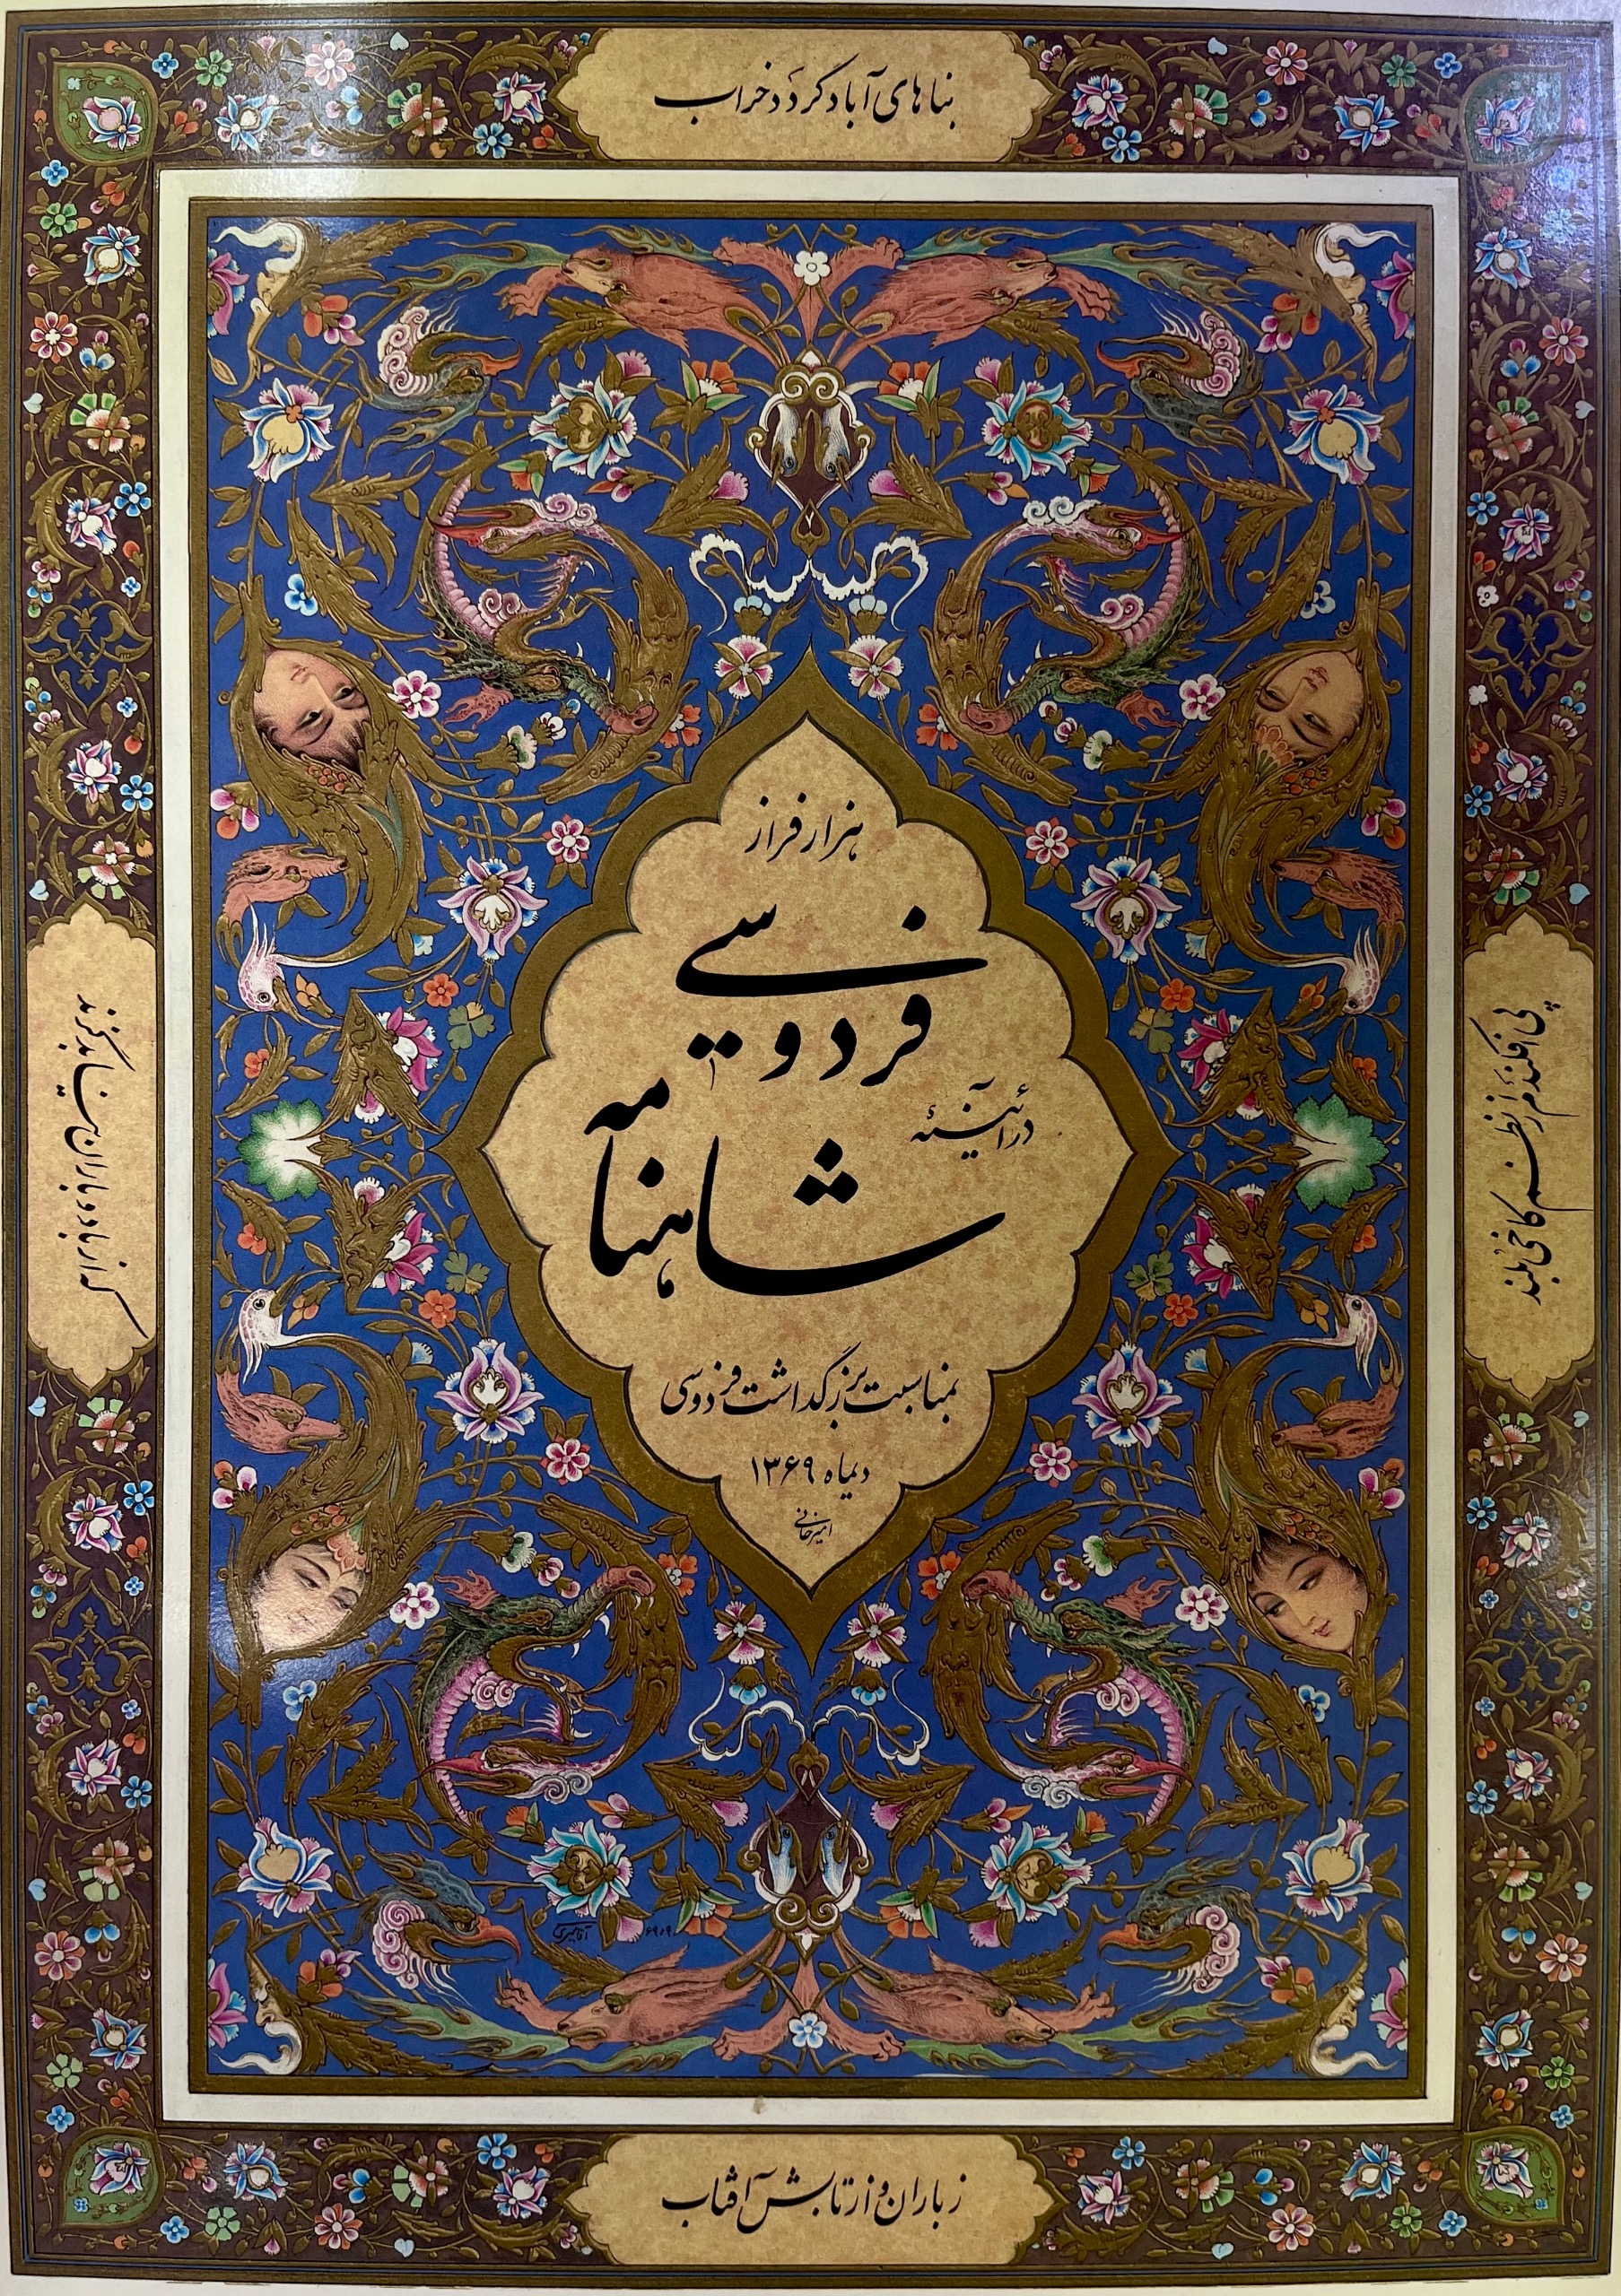 بناهای آباد گردد خراب
ز باران و از تابش آفتاب
پی افکندم از نظم کاخی بلند
که از باد و باران نیابد گزند
هزار فراز
فردوسی
در آئینهٔ
شاهنامه
بمناسبت بزرگداشت فردوسی
دیماه ۱۳۶۹
امیرخانی
آقامیری ۶۹/۹